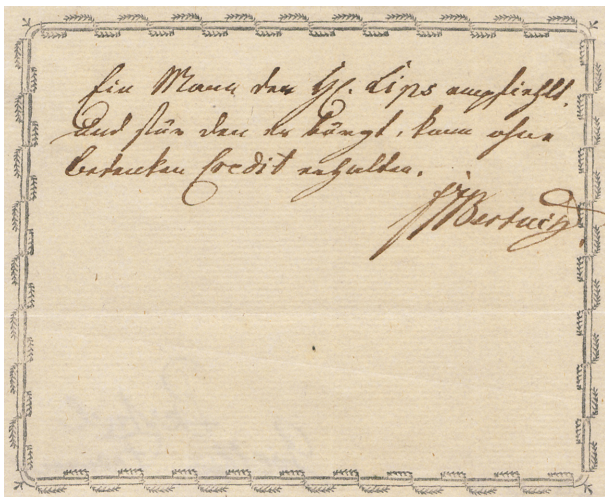 Ein Mann den H. Lips empfiehlt,
und für den er bürgt, kann ohne
Bedenken Credit erhalten.
FJBertuch